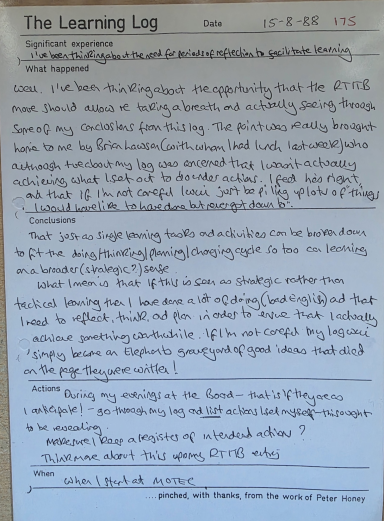 The Learning Log Date 15-8-88 175
Significant experience
I've been thinking about the need for periods of reflection to facilitate learning
What happened
Well. I've been thinking about the opportunity that the RTITB
move should allow re taking a breath and actually seeing through
some of my conclusions from this log. The point was really brought
home to me by Brian (with whom I had lunch last week) who
although +ve about my log was concerned that I wasn't actually
achieving what I set out to do under actions. I feel he's right,
and that if I'm not careful I will just be piling up lots of things
I would have like to have done but never got down to.
Conclusions
That just as single learning tasks and activities can be broken down
to fit the doing/thinking/planning/changing cycle so too can learning
on a broader (strategic?) sense.
What I mean is that if this is seen as strategic rather than
tactical learning then I have done a lot of doing (bad English) and that
I need to reflect, think, and plan in order to ensure that I actually
achieve something worthwhile. If I'm not careful my log will
simply become an Elephants graveyard of good ideas that died
on the page they were written!
Actions During my evenings at the Board - that is if they are as
I anticipate! - go through my log and list actions I set myself - this ought
to be revealing.
Make sure I keep a register of intended action?
Think more about this upon my RTITB
When
When I start at MOTEC
....pinched, with thanks, from the work of Peter Honey